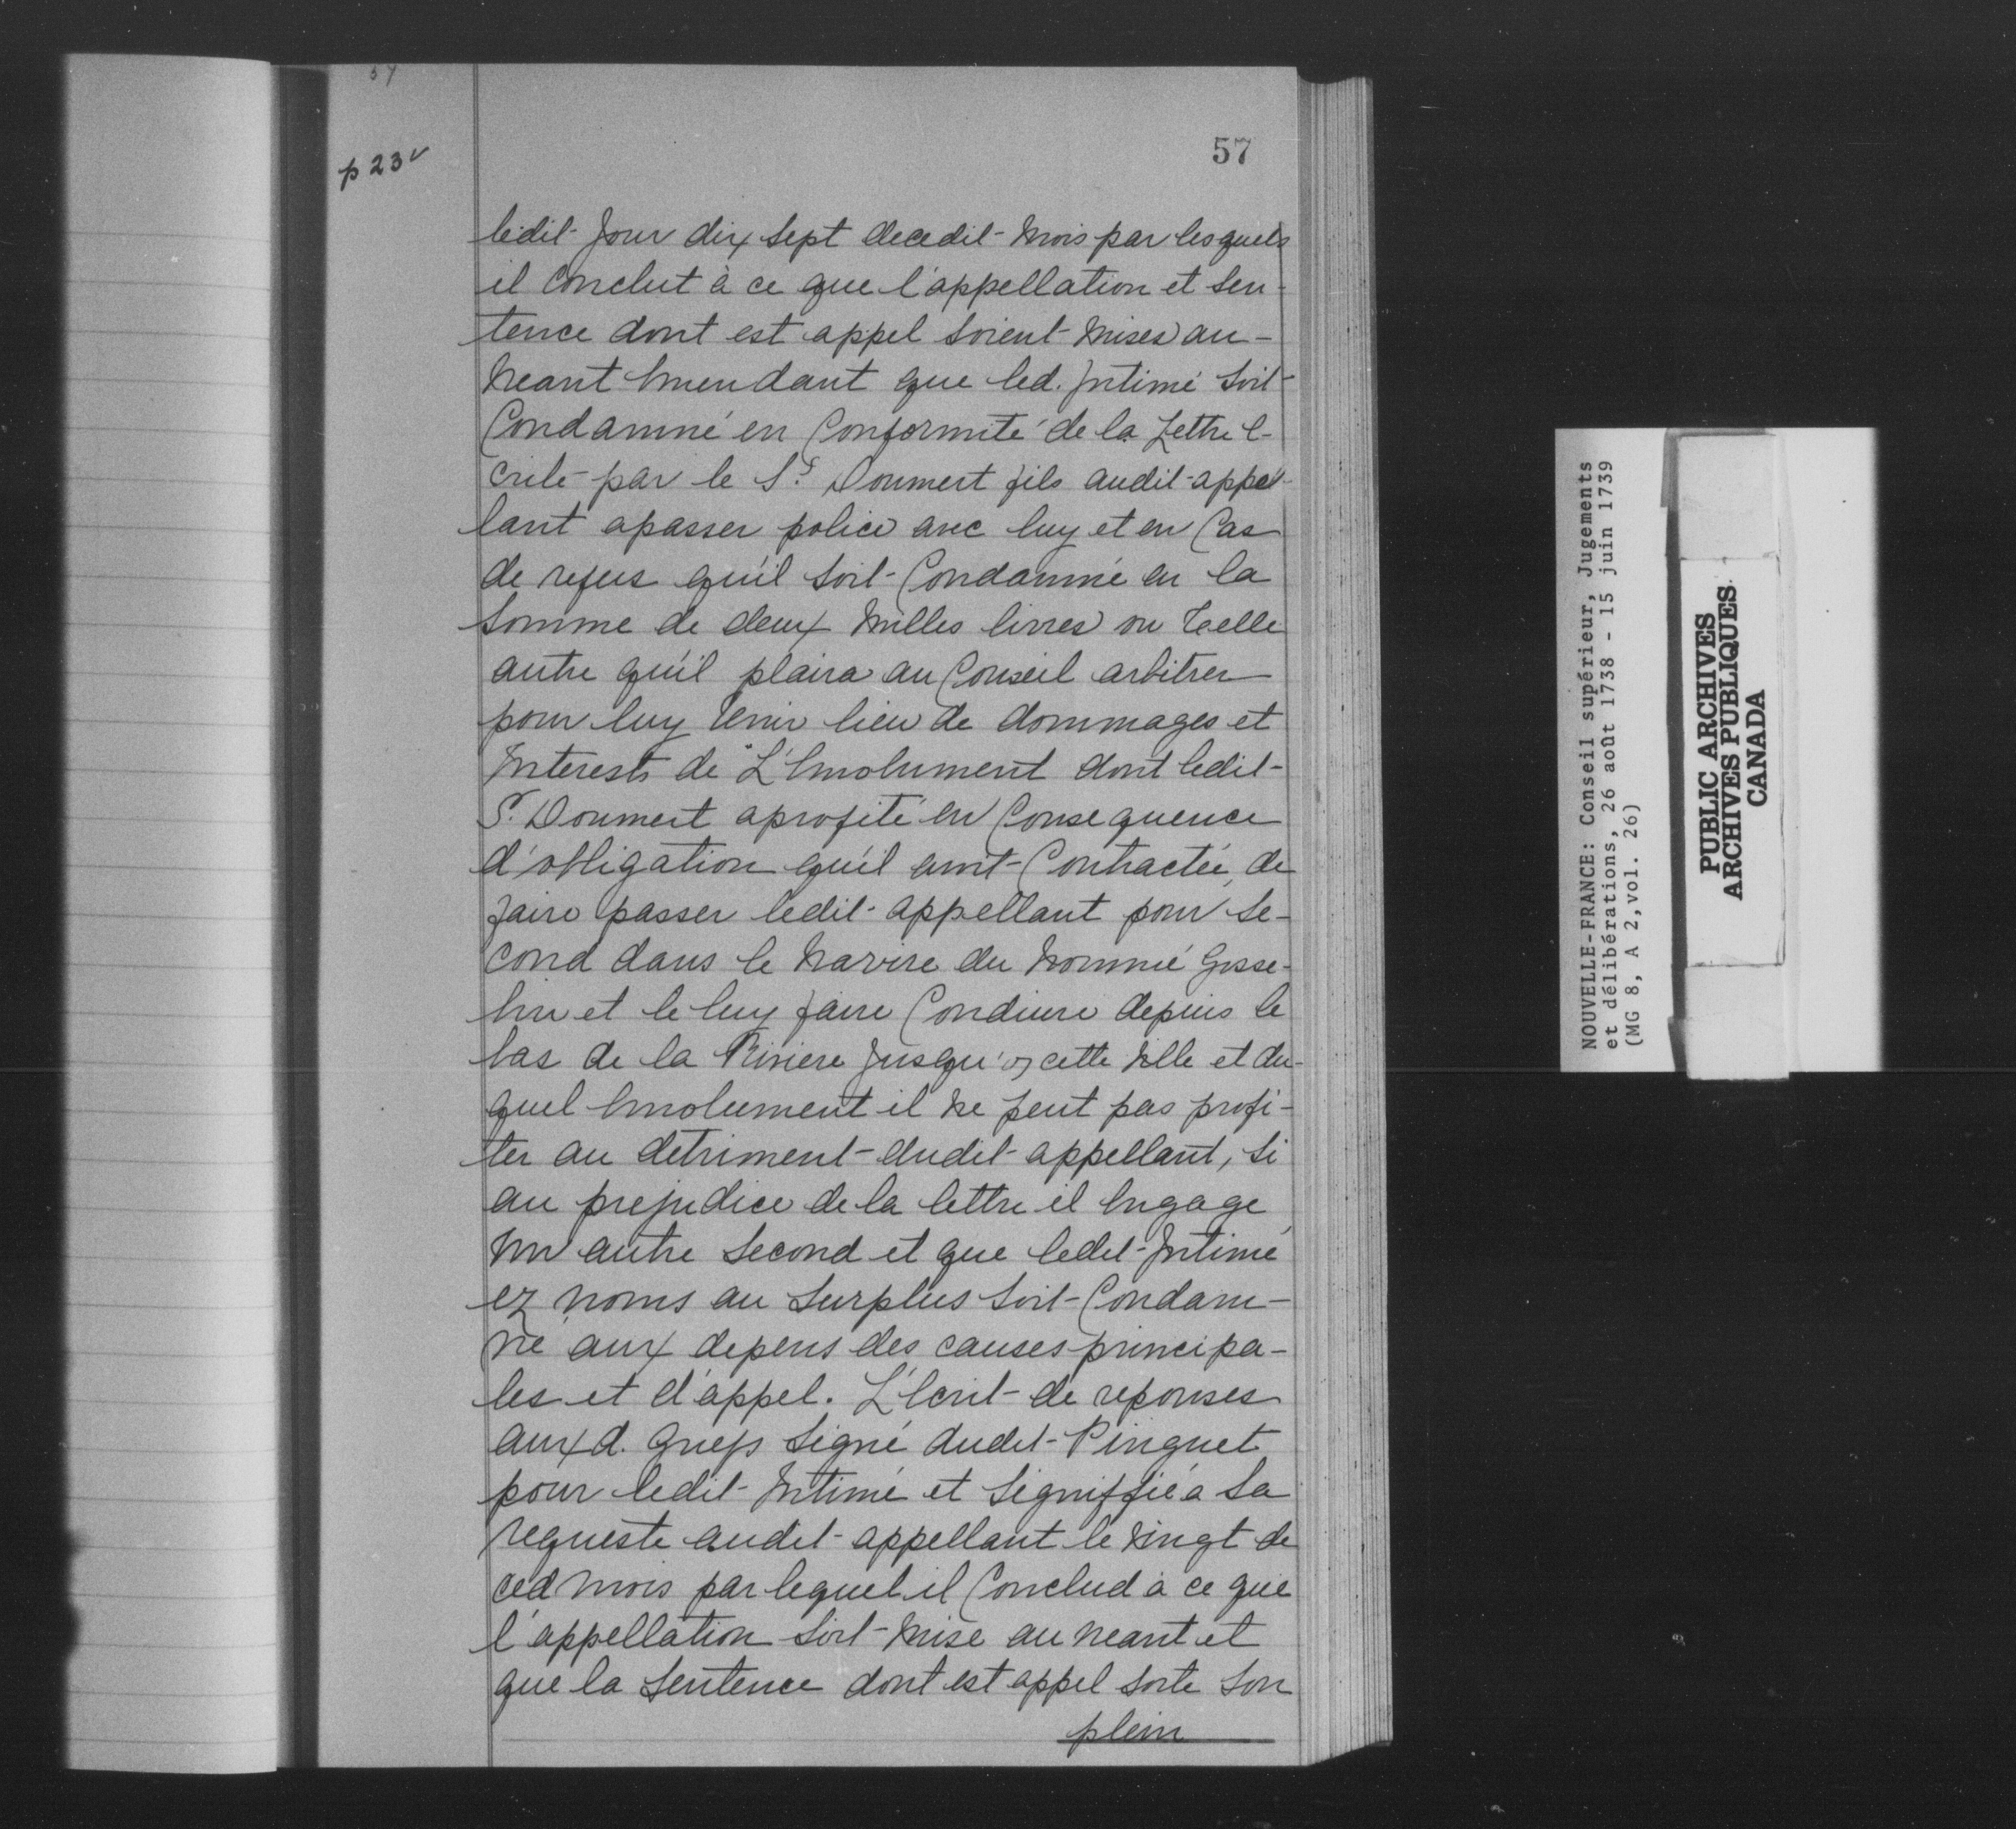 57
p 23 v
57
ledit Jour dix sept decedit Mois par lesquels
il Conclut à ce que l'appellation et Sen-
tence dont est appel Soient Mises au-
Neant Emendant que led. Intimé Soit
Condamné en Conformité de la Lettre E-
crite par le Sr. Doumert fils audit appel-
lant apasser police avec luy et en Cas
de refus qu'il Soit Condamné en la
Somme de deux Milles livres ou Telle
autre qu'il plaira au Conseil arbitrer
pour luy Tenir lieu de dommages et
Interests de L'Emolument dont ledit
Sr. Doumert aprofité en Consequence
d'obligation qu'il avoit Contractée de
faire passer ledit appellant pour Se-
cond dans le Navire du Nommé Gosse-
lin et le luy faire Conduire depuis le
bas de la Riviere Jusqu'a cette Ville et du-
quel Emolument il Ne peut pas profi-
ter au detriment dudit appellant, Si
au prejudice de la lettre il Engage
Un autre Second et que ledit Intimé
ez noms au Surplus Soit Condam-
né aux depens des causes principa-
les et d'appel. L'Ecrit de reponses
aux d. Griefs Signé dudit Pinguet
pour ledit Intimé et Signiffié a Sa
requeste audit appellant le Vingt de
ced mois par lequel il Conclud à ce que
l'appellation Soit Mise au neant et
que la Sentence dont est appel Sorte Son
plein
NOUVELLE-FRANCE: Conseil supérieur, Jugements
et délibérations, 26 août 1738 - 15 juin 1739
(MG 8, A 2, vol. 26)
PUBLIC ARCHIVES
ARCHIVES PUBLIQUES
CANADA